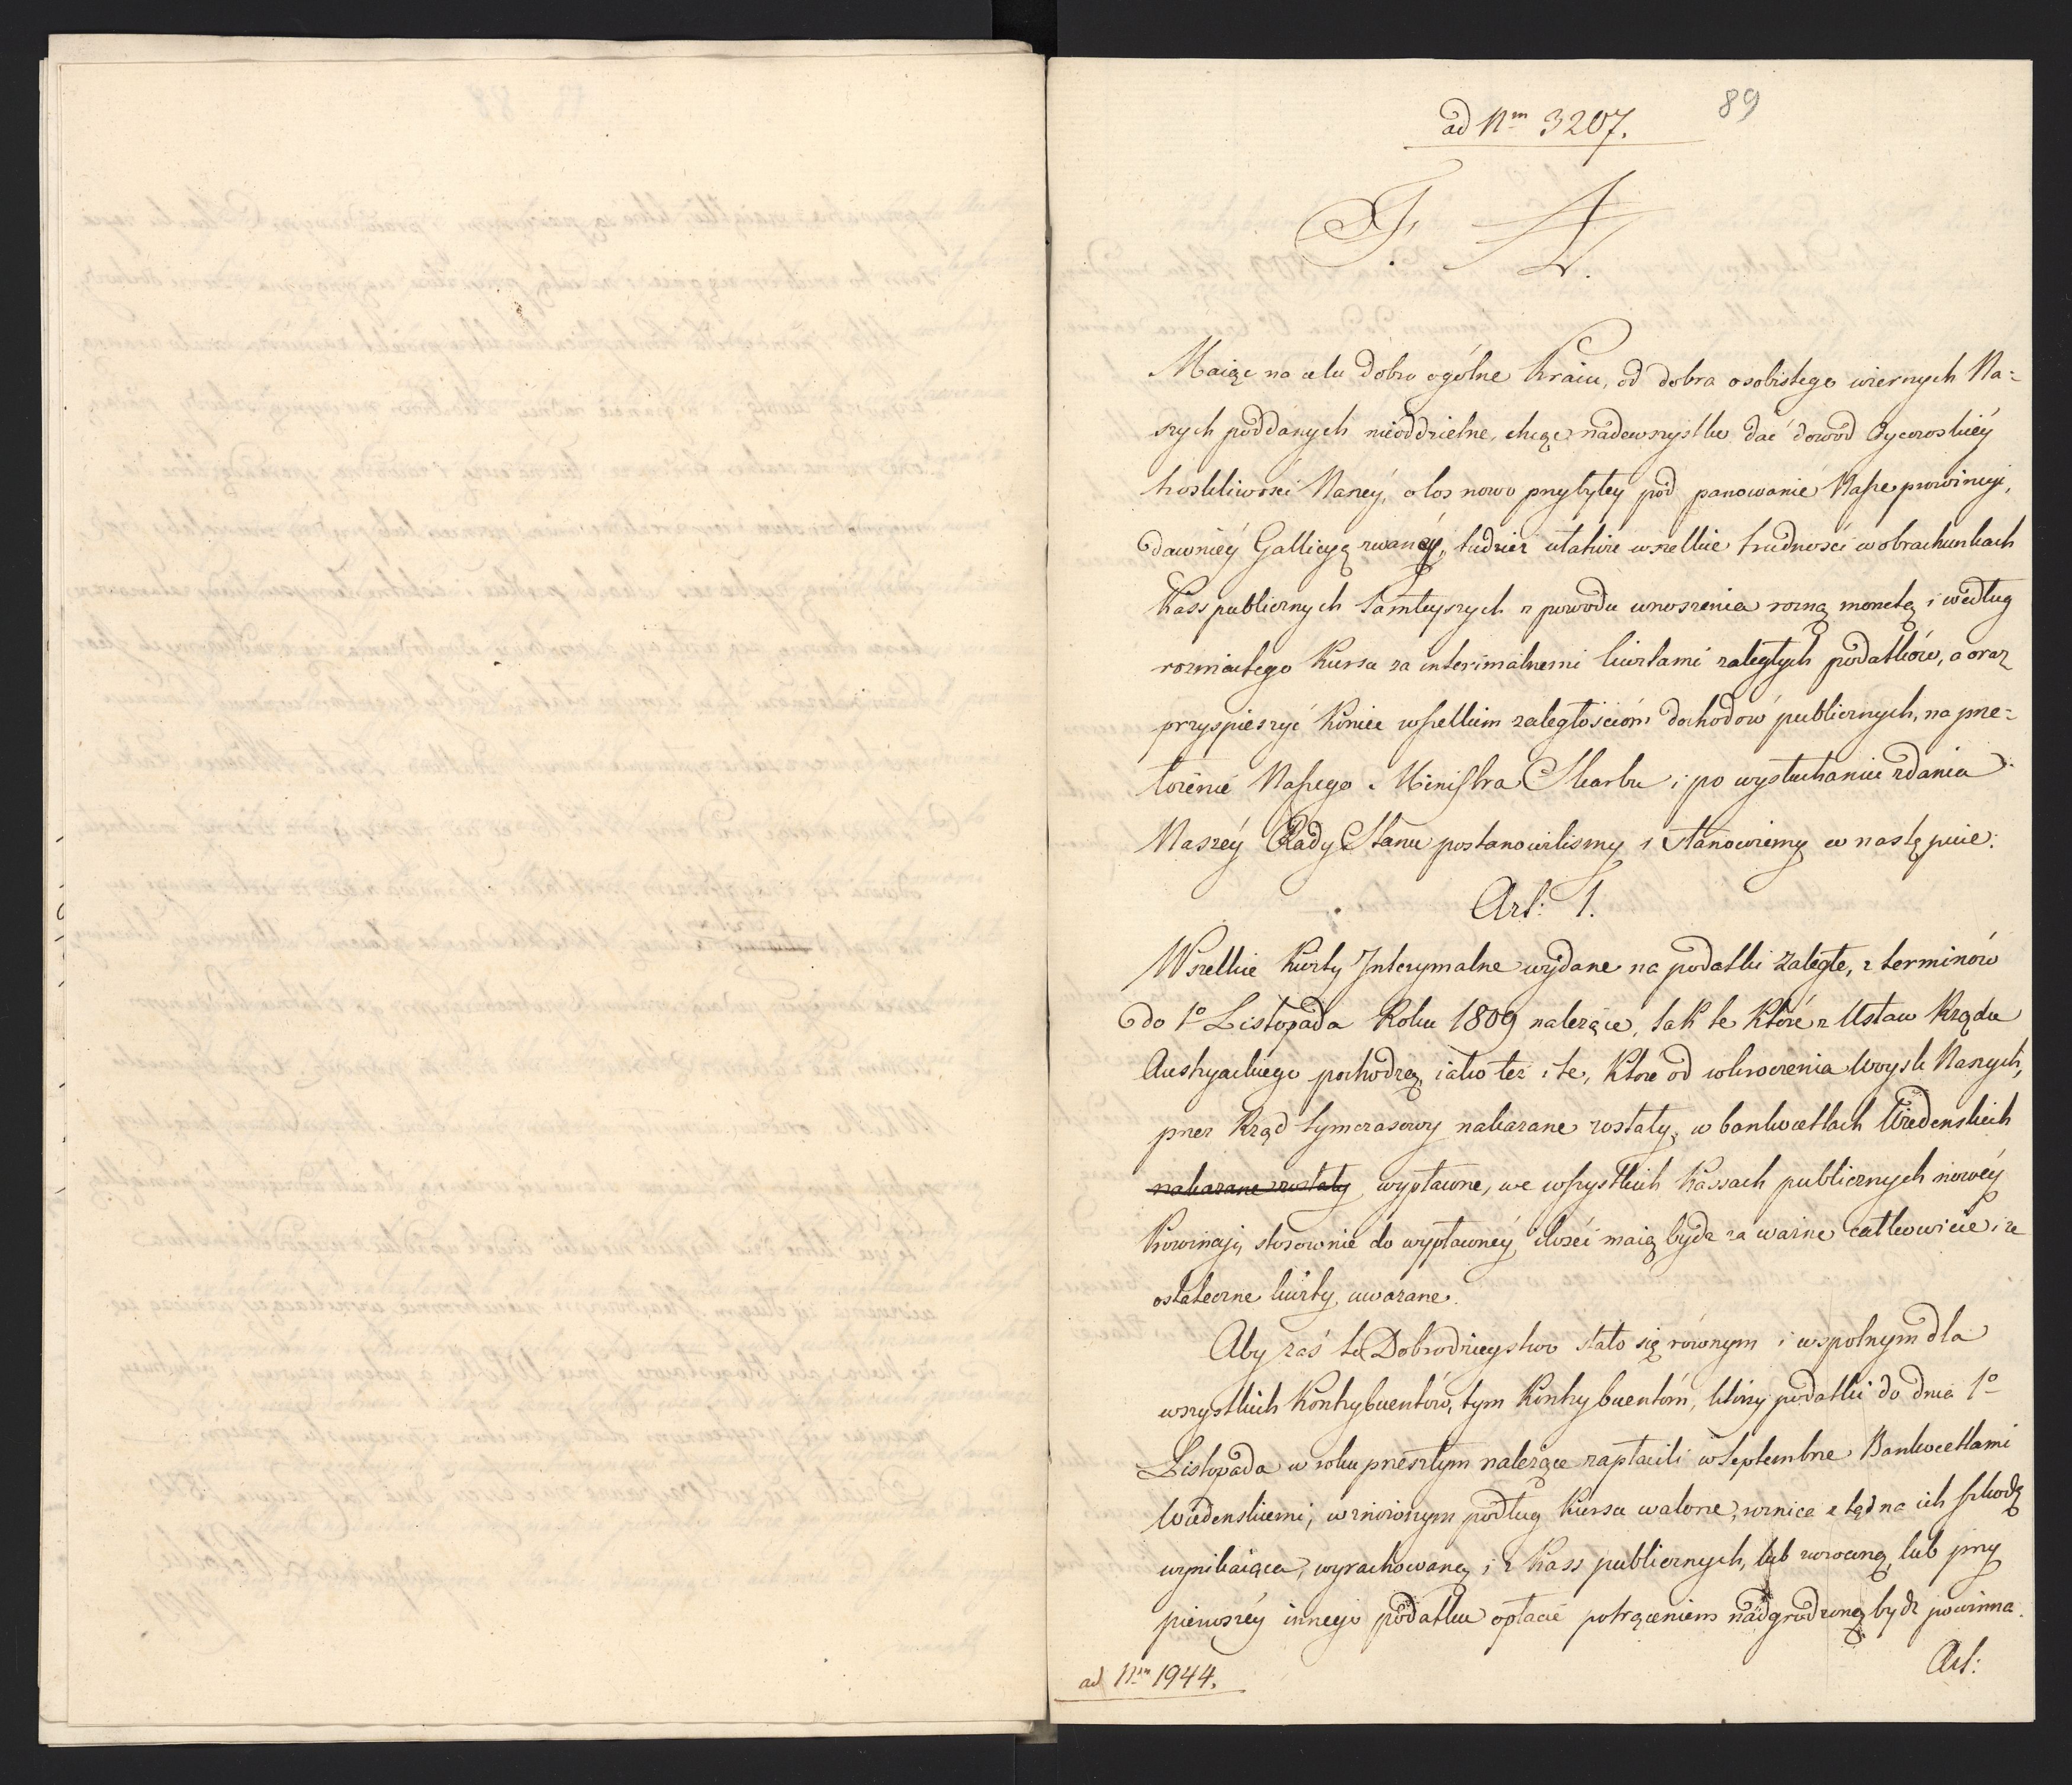 89
ad Nm 3207.
F. A.
Maiąc na celu dobro ogólne Kraiu, od dobra osobistego wiernych Na=
szych poddanych nieoddzielne, chcąc nadewszystko dać dowód Oycowskiéy
troskliwości Naszéy, o los nowo przybyłey pod panowanie Nasze prowincyi,
dawniéy Gallicyą zwanéy, tudzież ułatwić wszelkie trudności w obrachunkach
Kass publicznych tamteyszych z powodu wnoszenia rożną monetą i według
rozmaitego Kursu za interimalnemi kwitami zaległych podatków, a oraz
przyspieszyć Koniec wszelkim zaległościom dochodów publicznych, na prze=
łożenie Naszego Ministra Skarbu i po wysłuchaniu zdania
Naszéy Rady Stanu postanowilismy i stanowiemy co nastę puie:
Art: 1.
Wszelkie Kwity Interymalne wydane na podatki zaległe, z terminów
do 1o Listopada Roku 1809 należące, tak te Które z Ustaw Rządu
Austryackiego pochodzą, iako też i te, Które od wkroczenia Woysk Naszych,
przez Rząd tymczasowy nakazane zostały, w bankocetlach Wiedenskich
nakazane zostały wypłacone, we wszystkich Kassach publicznych nowéy
Prowincyi, stosownie do wypłaconéy ilości maią bydz za ważne całkowicie i za
ostateczne kwity uwazane.
Aby zaś to Dobrodzieystwo stało się równym i wspolnym dla
wszystkich Kontrybuentów, tym Kontrybuentóm, którzy podatki do dnia 1o
Listopada w roku przeszłym należące zapłacili w Septembrze Bankocetlami
Wiedenskiemi, w zniżonym podług Kursu walorze, roznica z tąd na ich szkodę
wynikaiąca, wyrachowaną i z Kass publicznych, lub zwroconą, lub przy
pierwszéy innego podatku opłacie potrąceniem nadgrodzoną bydz powinna.
Art:
ad Nm 1944.